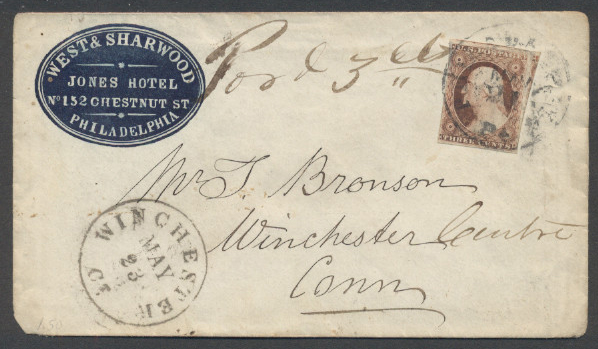 WEST & SHARWOOD
JONES HOTEL
No 152 CHESTNUT ST
PHILADELPHIA
THREE CENTS
Mr T. Bronson
Winchester Centre
Conn
WINCHESTER CT
MAY
23